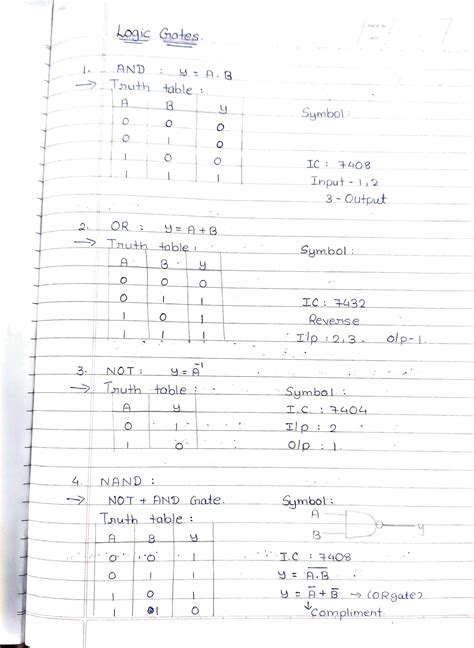 Logic Gates.
1. AND : y = A.B
→ Truth table :
A B y
0 0 0
0 1 0
1 0 0
1 1 1
Symbol :
IC : 7408
Input - 1,2
3 - Output
2. OR : y = A + B
→ Truth table :
A B y
0 0 0
0 1 1
1 0 1
1 1 1
Symbol :
IC : 7432
Reverse
I/p : 2,3. O/p - 1.
3. NOT : y = A⁻¹
→ Truth table :
A y
0 1
1 0
Symbol :
I.C. : 7404
I/p : 2
O/p : 1.
4. NAND :
→ NOT + AND Gate.
Truth table :
A B y
0 0 1
0 1 1
1 0 1
1 1 0
Symbol :
A
B
y
I.C : 7408
y = A̅.̅B̅
y = A̅ + B̅ → (OR gate)
↓ Compliment